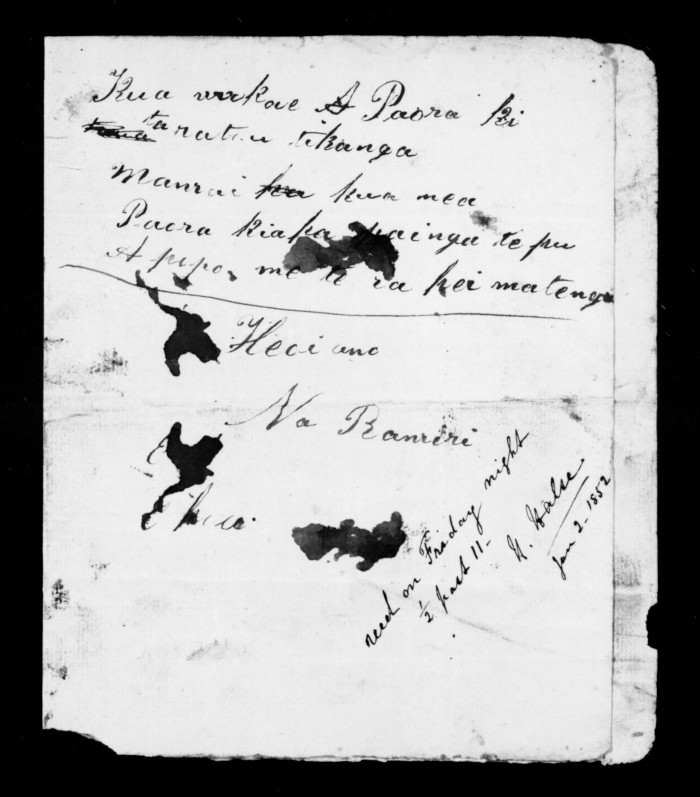 Kua wrkae A Paora ki
taratou tikanga
Manrai kua mea
Paora kiaka painga te pu
A pipo, me te ra hei matenga
Heoi ano
Na Ramiri
recd on Friday night
½ past 11-
H. Halse.
Jan 2- 1852